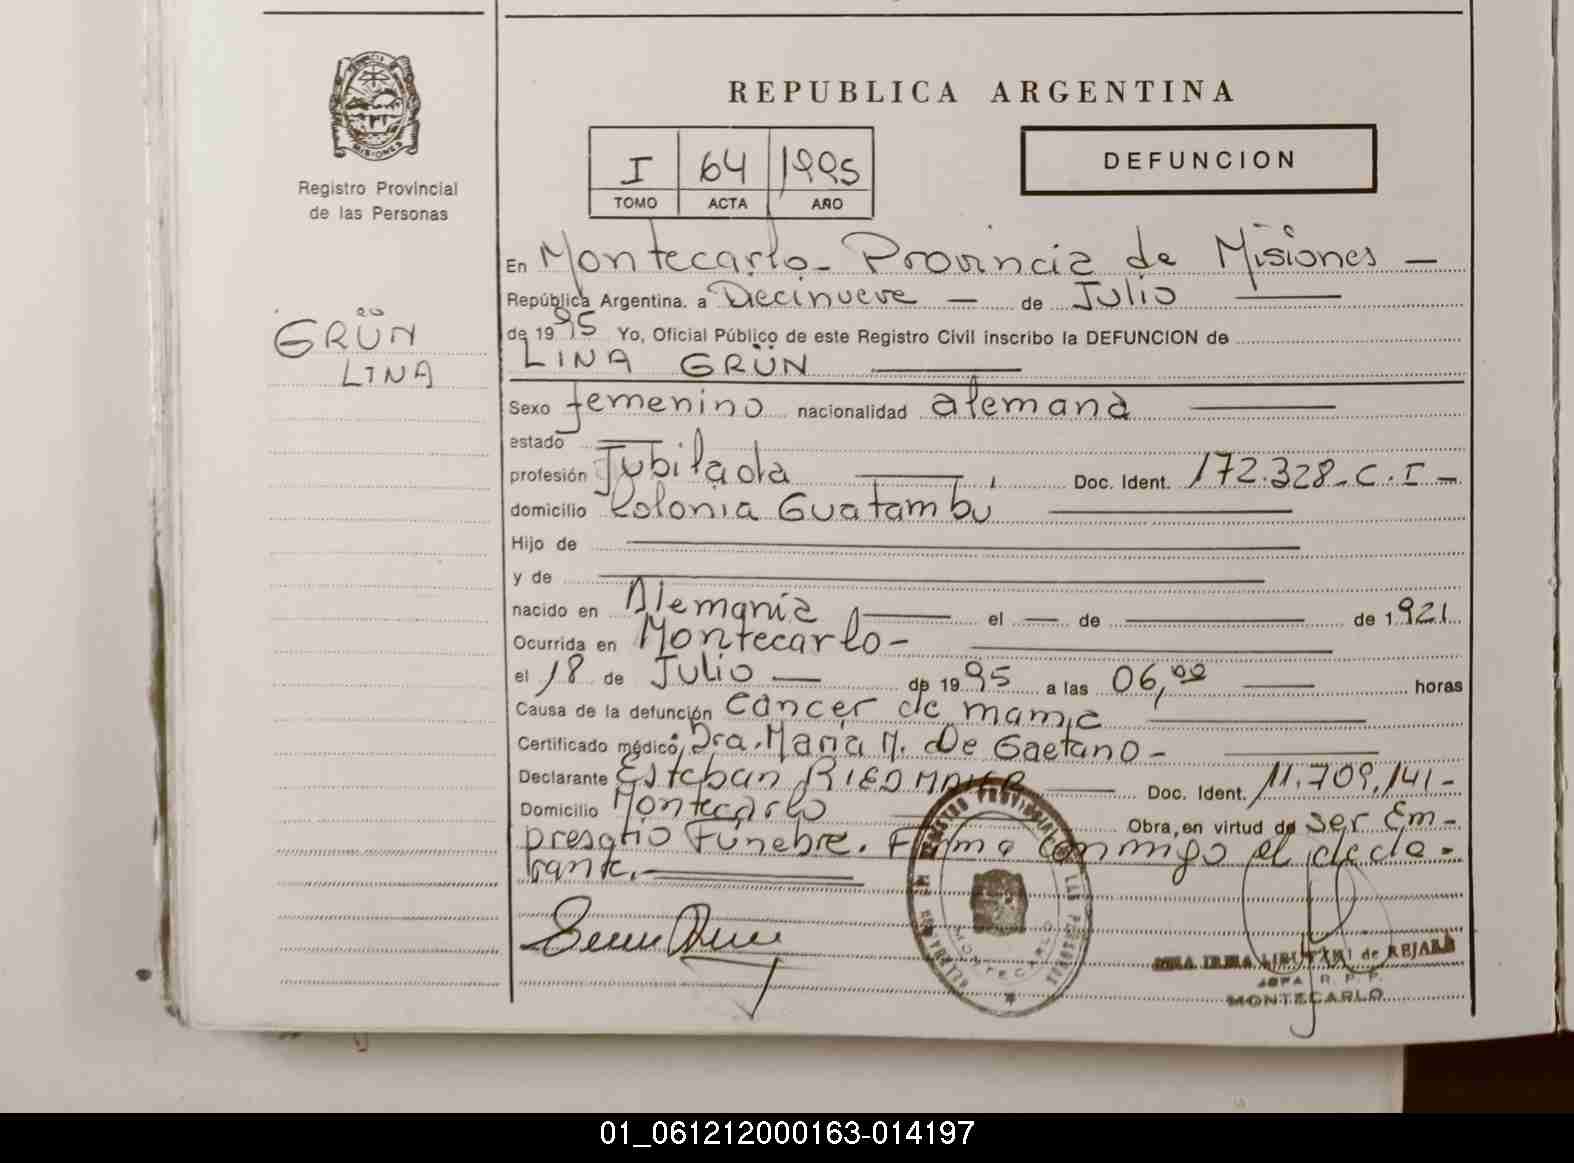 MISIONES
Registro Provincial
de las Personas
GRÜN
LINA
REPUBLICA ARGENTINA
I 64 1995
TOMO ACTA AÑO
DEFUNCION
En Montecarlo - Provincia de Misiones —
República Argentina. a Diecinueve — de Julio
de 1995 Yo, Oficial Público de este Registro Civil inscribo la DEFUNCION de
LINA GRÜN
Sexo femenino nacionalidad alemana
estado
profesión Jubilada Doc. Ident. 172.328-C.I-
domicilio Colonia Guatambú
Hijo de
y de
nacido en Alemania el — de — de 1921
Ocurrida en Montecarlo-
el 18 de Julio — de 1995 a las 06,00 horas
Causa de la defunción cancer de mama
Certificado médico, Dra. María M. De Gaetano-
Declarante Esteban RIEDMAIER Doc. Ident. 11.709.141-
Domicilio Montecarlo Obra, en virtud de ser Em-
presario Fúnebre. Firma conmigo el decla-
rante.-
REGISTRO PROVINCIAL DE LAS PERSONAS
MONTECARLO
IRMA de REJALA
JEFA R. P. P.
MONTECARLO
01_061212000163-014197